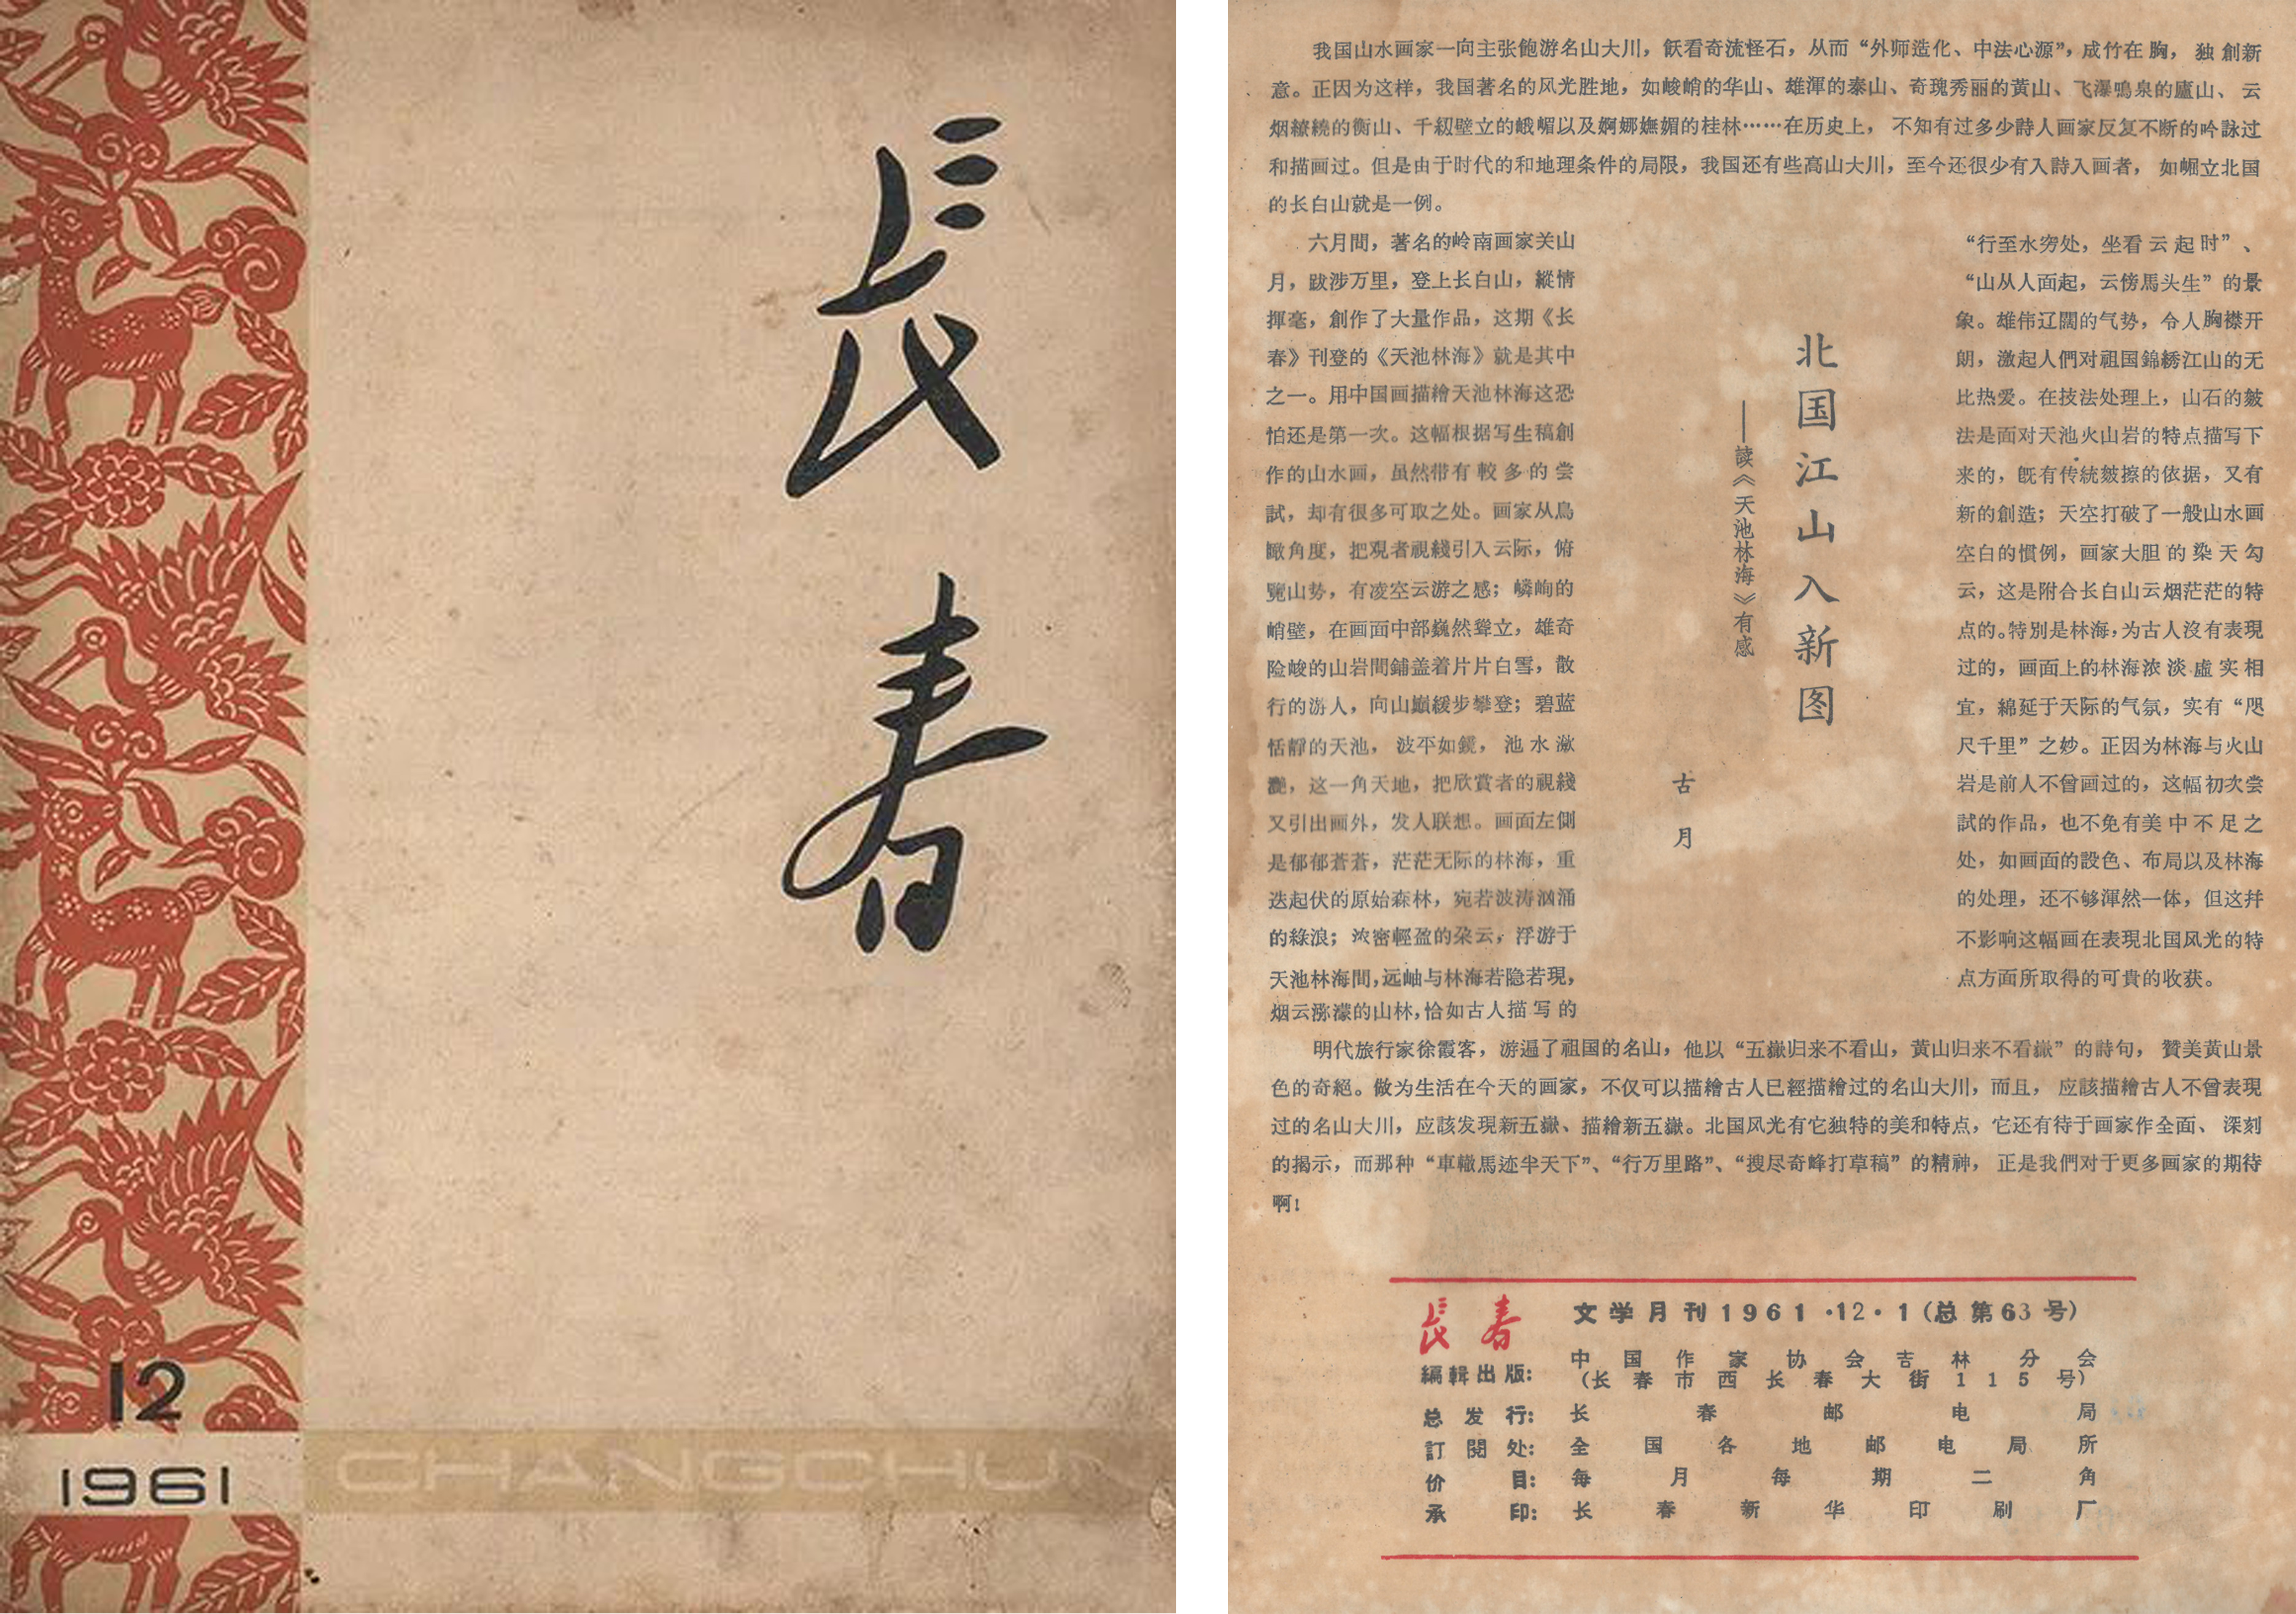 長春
12
1961
CHANGCHUN
我国山水画家一向主张飽游名山大川，飫看奇流怪石，从而“外师造化、中法心源”，成竹在胸，独創新
意。正因为这样，我国著名的风光胜地，如峻峭的华山、雄渾的泰山、奇瑰秀丽的黄山、飞瀑鳴泉的廬山、云
烟繚繞的衡山、千紉壁立的峨嵋以及婀娜嫵媚的桂林……在历史上，不知有过多少詩人画家反复不断的吟詠过
和描画过。但是由于时代的和地理条件的局限，我国还有些高山大川，至今还很少有入詩入画者，如崛立北国
的长白山就是一例。
北国江山入新图
——读《天池林海》有感
古月
六月間，著名的岭南画家关山
月，跋涉万里，登上长白山，縱情
揮毫，創作了大量作品，这期《长
春》刊登的《天池林海》就是其中
之一。用中国画描繪天池林海这恐
怕还是第一次。这幅根据写生稿創
作的山水画，虽然带有較多的尝
試，却有很多可取之处。画家从鳥
瞰角度，把观者視綫引入云际，俯
覽山势，有凌空云游之感；嶙峋的
峭壁，在画面中部巍然聳立，雄奇
险峻的山岩間鋪盖着片片白雪，散
行的游人，向山巔緩步攀登；碧蓝
恬靜的天池，波平如鏡，池水瀲
灧，这一角天地，把欣賞者的視綫
又引出画外，发人联想。画面左側
是郁郁蒼蒼，茫茫无际的林海，重
迭起伏的原始森林，宛若波涛汹涌
的綠浪；浓密輕盈的朵云，浮游于
天池林海間，远岫与林海若隐若現，
烟云瀰濛的山林，恰如古人描写的
“行至水穷处，坐看云起时”、
“山从人面起，云傍馬头生”的景
象。雄伟辽闊的气势，令人胸襟开
朗，激起人們对祖国錦綉江山的无
比热爱。在技法处理上，山石的皴
法是面对天池火山岩的特点描写下
来的，既有传統皴擦的依据，又有
新的創造；天空打破了一般山水画
空白的慣例，画家大胆的染天勾
云，这是附合长白山云烟茫茫的特
点的。特别是林海，为古人沒有表現
过的，画面上的林海浓淡虛实相
宜，綿延于天际的气氛，实有“咫
尺千里”之妙。正因为林海与火山
岩是前人不曾画过的，这幅初次尝
試的作品，也不免有美中不足之
处，如画面的設色、布局以及林海
的处理，还不够渾然一体，但这幷
不影响这幅画在表現北国风光的特
点方面所取得的可貴的收获。
明代旅行家徐霞客，游遍了祖国的名山，他以“五嶽归来不看山，黄山归来不看嶽”的詩句，贊美黄山景
色的奇絕。做为生活在今天的画家，不仅可以描繪古人已經描繪过的名山大川，而且，应該描繪古人不曾表現
过的名山大川，应該发現新五嶽、描繪新五嶽。北国风光有它独特的美和特点，它还有待于画家作全面、深刻
的揭示，而那种“車轍馬迹半天下”、“行万里路”、“搜尽奇峰打草稿”的精神，正是我們对于更多画家的期待
啊！
長春 文学月刊1961·12·1（总第63号）
編輯出版：中国作家协会吉林分会
（长春市西长春大街115号）
总发行：长春邮电局
訂閱处：全国各地邮电局所
价目：每月每期二角
承印：长春新华印刷厂